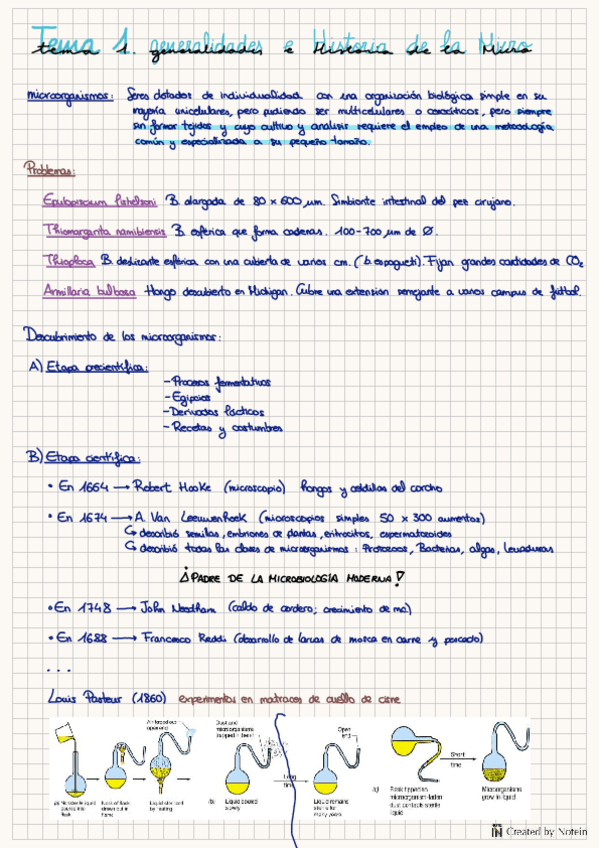 Tema 1. generalidades e Historia de la Micro
microorganismos: Seres dotados de individualidad con una organización biológica simple en su
mayoría unicelulares, pero pudiendo ser multicelulares o cenocíticos, pero siempre
sin formar tejidos y cuyo cultivo y analisis requiere el empleo de una metodología
común y especializada a su pequeño tamaño.
Problemas:
Epulopiscium fishelsoni B. alargada de 80 x 600 µm. Simbionte intestinal del pez cirujano.
Thiomargarita namibiensis B. esférica que forma cadenas. 100-700 µm de Ø.
Thioploca B. deslizante esférica con una cubierta de varios cm. (b. espagueti). Fijan grandes cantidades de CO2
Armillaria bulbosa Hongo descubierto en Michigan. Cubre una extensión semejante a varios campus de fútbol.
Descubrimiento de los microorganismos:
A) Etapa precientífica:
- Procesos fermentativos
- Egipcios
- Derivados lácticos
- Recetas y costumbres
B) Etapa científica:
• En 1664 → Robert Hooke (microscopio) Hongos y celdillas del corcho
• En 1674 → A. Van Leeuwenhook (microscopios simples 50 x 300 aumentos)
↳ describió semillas, embriones de plantas, eritrocitos, espermatozoides
↳ describió todas las clases de microorganismos: Protozoos, Bacterias, algas, levaduras
¡PADRE DE LA MICROBIOLOGÍA MODERNA!
• En 1748 → John Needham (caldo de cordero; crecimiento de mo)
• En 1688 → Francesco Reddi (desarrollo de larvas de mosca en carne y pescado)
...
Louis Pasteur (1860) experimentos en matraces de cuello de cisne
(a) Nonsterile liquid poured into flask
Neck of flask drawn out in flame
Liquid sterilized by heating
Dust and microorganisms trapped in bend
(b) Liquid cooled slowly
Long time
Open end
Liquid remains sterile for many years
(c)
Flask tipped so microorganism-laden dust contacts sterile liquid
Short time
Microorganisms grow in liquid
Created by Notein